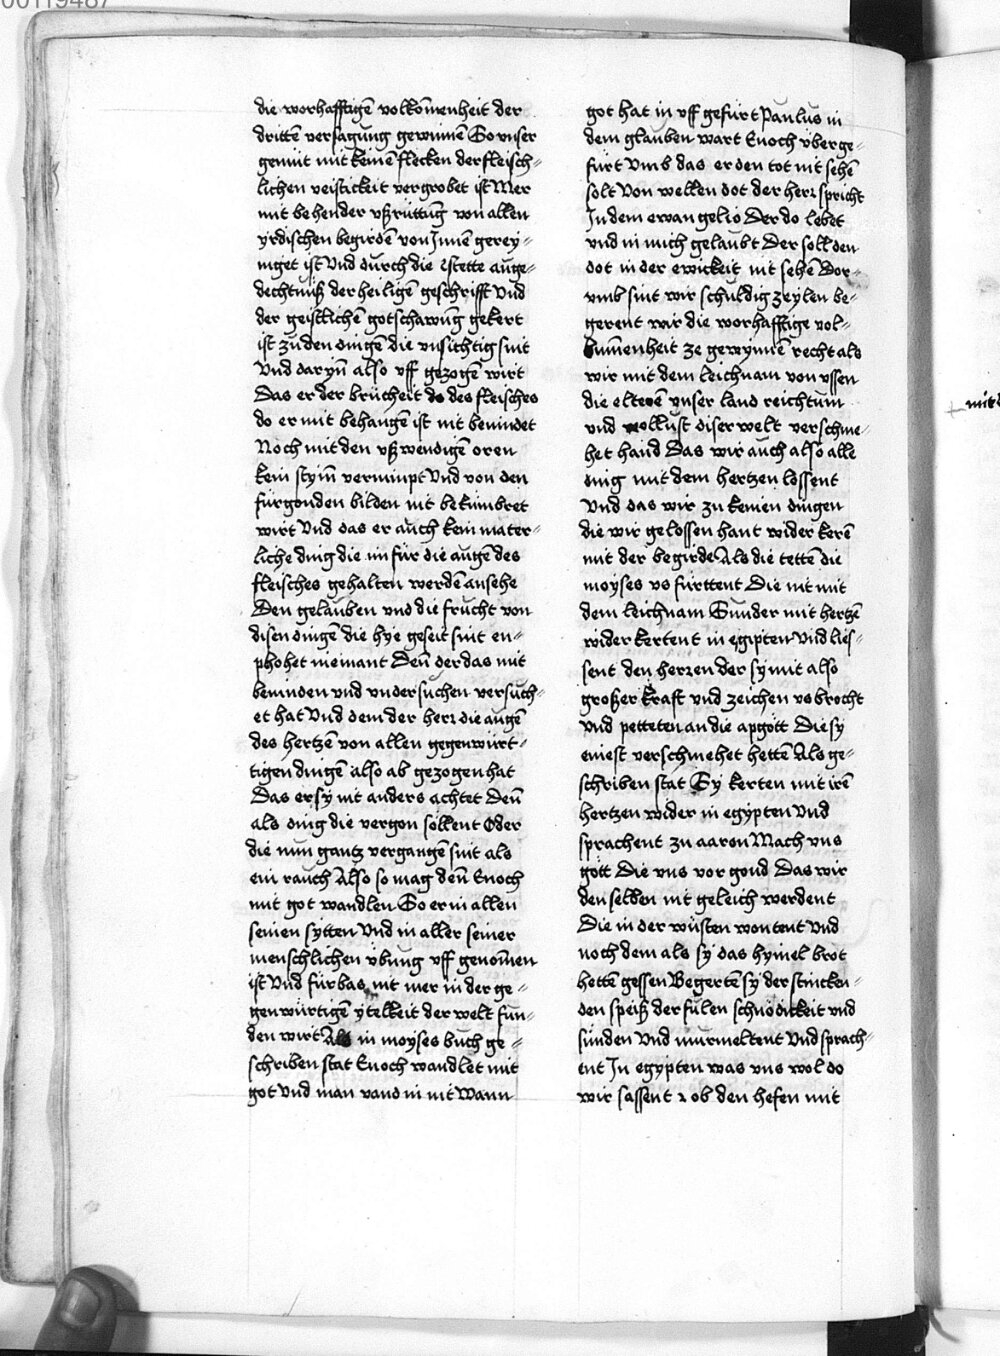 00119487
die worhafftigē volkōmenheit der
drittē versagung gewinnē So vnser
gemüt mit keinē flecken der fleisch=
lichen veistickeit vergrobet ist Mer
mit behender vßrüttūg von allen
yrdischen begirdē von Jnnen gerey=
niget ist Vnd durch die stette auge=
dechtniß der heiligē geschrifft Vnd
der geistlichē gotschawūg gekert
ist zů den dingē die vnsichtig sint
Vnd daryn̄ also vff gezogē wirt
Das er der brücheit do des fleisches
do er mit behangē ist nit bevindet
Noch mit den vßwendigē oren
kein stym̄ vernimpt Vnd von den
fürgonden bilden nit bekümbret
wirt Vnd das er auch kein mater=
liche ding die im für die augē des
fleisches gehalten werdē ansehe
Den gelauben vnd die frucht von
disen dingē die hye geseit sint en=
phohet niemant Den̄ der das mit
bevinden vnd vndersuchen versuch=
et hat Vnd dem der herr die augē
des hertzē von allen gegenwürt=
tigen dingē also ab gezogen hat
Das er sy nit anders achtet Den̄
als ding die vergon söllent Oder
die nun gantz vergangē sint als
ein rauch Also so mag den̄ Enoch
mit got wandlen So er in allen
seinen sytten Vnd in aller seiner
menschlichen vbung vff genōmen
ist Vnd fürbas nit mer in der ge=
genwürtigē ytelkeit der welt fun=
den wirt Als in moyses buch ge=
schriben stat Enoch wandlet mit
got Vnd man vand in nit Wann
got hat in vff gefürt Paulus in
dem glauben wart Enoch vberge=
fürt Vmb das er den tot nit sehē
solt Von wellen dot der herr spricht
Jn dem ewangelio Der do lebet
vnd in mich gelaubt Der soll den
dot in der ewickeit nit sehē Dor=
vmb sint wir schuldig zeylen be=
gerent wir die worhafftige vol=
kum̄enheit ze gewynnē recht als
wir mit dem leichnam von vssen
die elteren vnser land reichtum
vnd wollust diser welt verschme=
het hand Das wir auch also alle
ding mit dem hertzen lossent
Vnd das wir zu keinen dingen
die wir gelossen hant wider kerē
mit der begirde Als die tettē die
moyses vs fürttent Die nit mit
dem leichnam Sunder mit hertzē
wider kertent in egipten Vnd lies=
sent den herren der sy mit also
großer kraft vnd zeichen vs brocht
Vnd petteten an die apgött Die sy
eniest verschmehet hettē Als ge=
schriben stat Sy kerten mit irē
hertzen wider in egypten Vnd
sprachent zu aaron Mach vns
gött Die vns vor gond Das wir
den selben nit geleich werdent
Die in der wüsten wontent Vnd
noch dem als sy das hymel brot
hettē gessen Begertē sy der stincken=
den speiß der fulen schnödickeit vnd
sünden Vnd murmeltent Vnd sprach=
ent Jn egypten was vns wol do
wir sassent ob den hefen mit